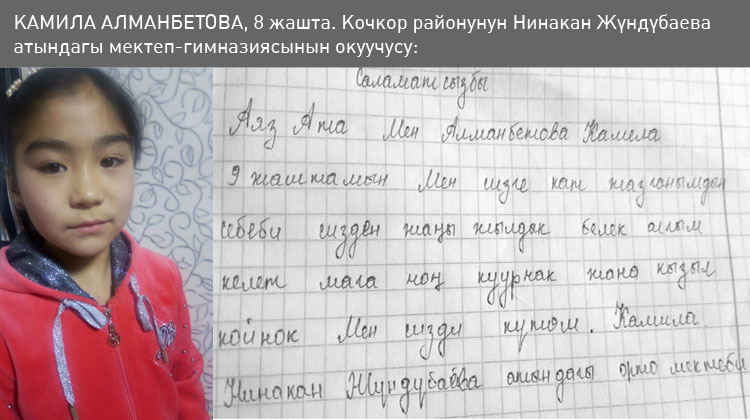 КАМИЛА АЛМАНБЕТОВА, 8 жашта. Кочкор районунун Нинакан Жүндүбаева
атындагы мектеп-гимназиясынын окуучусу:
Саламатсызбы
Аяз Ата Мен Алманбетова Камела
9 жаштамын Мен сизге кат жазганымдын
себеби сизден жаңы жылдык белек алгым
келет мага чоң куурчак жана кызыл
койнок Мен сизди кутом. Камила
Нинакан Жундубаева атындагы орто мектеби